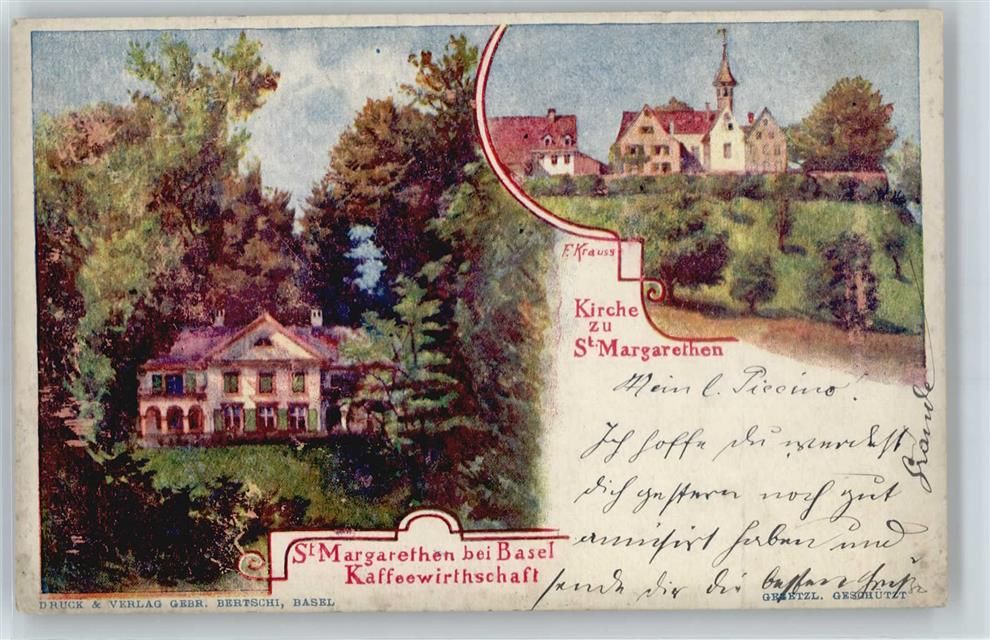 F. Krauss
Kirche
zu
St. Margarethen
Mein l. Piccino!
Ich hoffe du werdest
dich gestern noch gut
amüsirt haben und
sende dir die besten Grüße
St. Margarethen bei Basel
Kaffeewirthschaft
DRUCK & VERLAG GEBR. BERTSCHI, BASEL
GESETZL. GESCHÜTZT